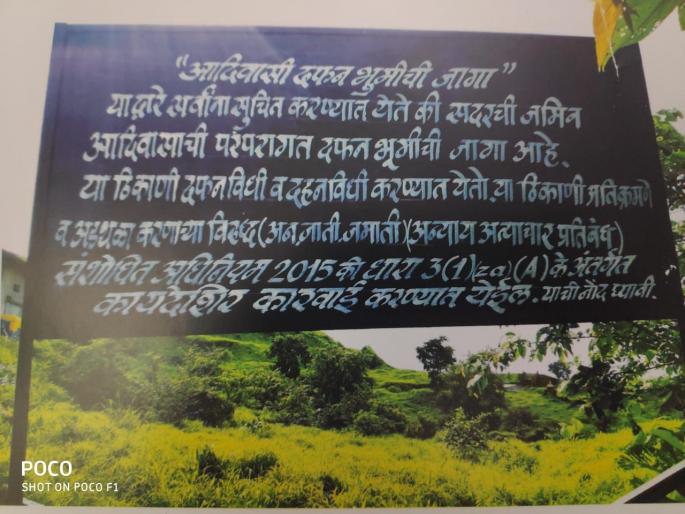 "आदिवासी दफन भुमीची जागा"
याद्वारे सर्वांना सुचित करण्यात येते की सदरची जमिन
आदिवासाची परंपरागत दफन भूमीची जागा आहे.
या ठिकाणी दफनविधी व दहनविधी करण्यात येतो. या ठिकाणी अतिक्रमणे
व अडथळा करणाऱ्या विरुद्ध (अनु.जाती.जमाती) (अन्याय अत्याचार प्रतिबंध)
संशोधित अधिनियम 2015 की धारा 3(1)(za)(A) के अंतर्गत
कायदेशिर कारवाई करण्यात येईल. याची नोंद घ्यावी.
POCO
SHOT ON POCO F1